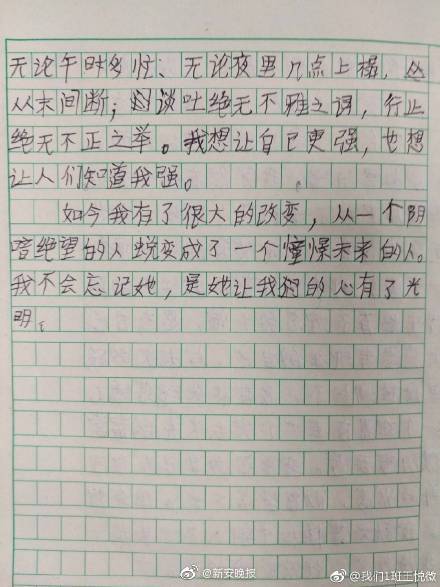 无论午时多忙、无论夜里几点上榻，
从未间断；谈吐绝无不雅之词，行止
绝无不正之举。我想让自己更强，也想
让人们知道我强。
如今我有了很大的改变，从一个阴
暗绝望的人蜕变成了一个憧憬未来的人。
我不会忘记她，是她让我的心有了光
明。
@新安晚报
@我们1班王悦微